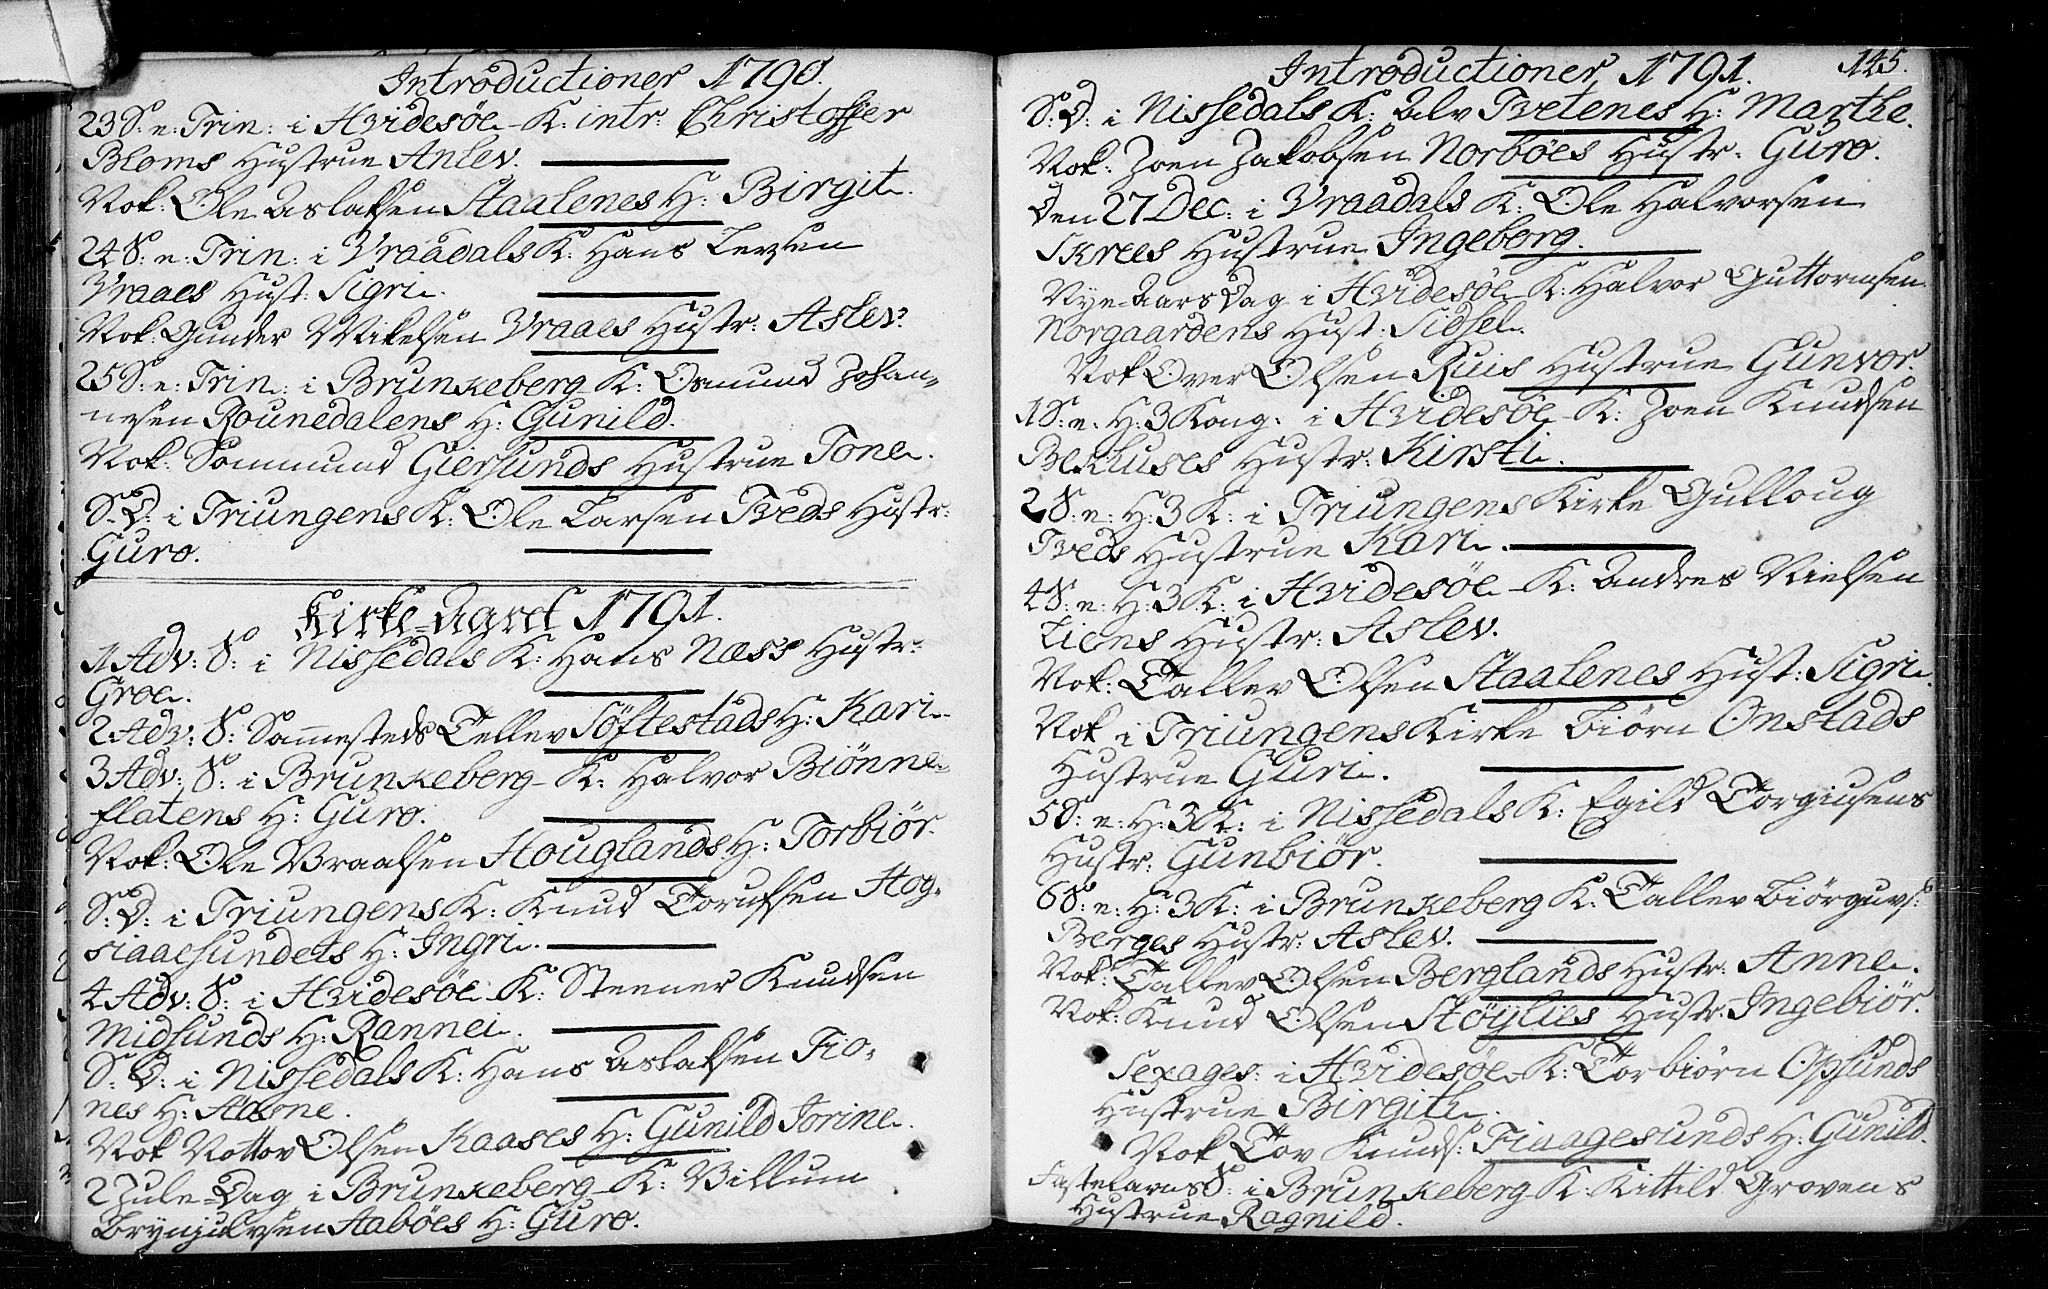 Introductioner 1790.
23 S: e: Trin: i Hvidesöe K: intr: Christoffer
Bloms Hustrue Anlev.
Nok: Ole Aslaksen Staalenes H: Birgit.
24 S: e: Trin: i Vraadals K: Hans Levsen
Vraaes Hust: Sigri.
Nok: Gunder Mikelsen Vraaes Hustr: Aslev.
25 S: e: Trin: i Brunkeberg K: Osmund Johan-
nesen Rounedalens H: Gunild.
Nok: Sommund Giersunds Hustrue Tone.
S: D: i Triungens K: Ole Larsen Tveds Hustr:
Guro.
Kirke-Aaret 1791.
1 Adv: S: i Nissedals K: Hans Næss Hustr:
Groe.
2 Adv: S: Sammesteds Tellev Söftestads H: Kari.
3 Adv: S: i Brunkeberg K: Halvor Biönne-
flatens H: Guro.
Nok: Ole Vraalsen Houglands H: Torbiör.
S: D: i Triungens K: Knud Torufsen Hog-
siaaesundets H: Ingri.
4 Adv: S: i Hvidesöe K: Steener Knudsen
Midsunds H: Rannei.
S: D: i Nissedals K: Hans Aslaksen Fio-
nes H: Aasne.
Nok Nottov Olsen Kaases H: Gunild Jorine.
2 Jule-Dag i Brunkeberg K: Villum
Brynjulvsen Aaböes H: Guro.
Introductioner 1791. 145.
S: D: i Nissedals K: Alv Tvetenes H: Marthe.
Nok: Joen Jakobsen Norböes Hustr: Guro.
Den 27 Dec: i Vraadals K: Ole Halvorsen
Skrees Hustrue Ingeborg.
Nye-Aars Dag i Hvidesöe K: Halvor Guttormsen
Norgaardens Hust: Sidsel.
Nok Over Olsen Ruis Hustrue Gunvor.
1 S: e: H: 3 Kong: i Hvidesöe K: Joen Knudsen
Bekhuses Hustr: Kirsti.
2 S: e: H: 3 K: i Triungens Kirke Gulloug
Tveds Hustrue Kari.
4 S: e: H: 3 K: i Hvidesöe K: Andres Nielsen
Liens Hustr: Aslev.
Nok: Tallev Olsen Staalenes Hust: Sigri.
Nok i Triungens Kirke Biörn Onstads
Hustrue Guri.
5 S: e: H: 3 K: i Nissedals K: Egild Torgiusens
Hustr: Gunbiör.
6 S: e: H: 3 K: i Brunkeberg K: Tallev Biörguvs:
Berges Hustr: Aslev.
Nok: Tallev Olsen Berglands Hustr: Anne.
Nok: Knud Olsen Stöylies Hustr: Ingebiör.
Sexages: i Hvidesöe K: Torbiörn Opsunds
Hustrue Birgit.
Nok Tov Knuds: Fiaagesunds H: Gunild.
Fastelavns S: i Brunkeberg K: Kittild Grovens
Hustrue Ragnild.